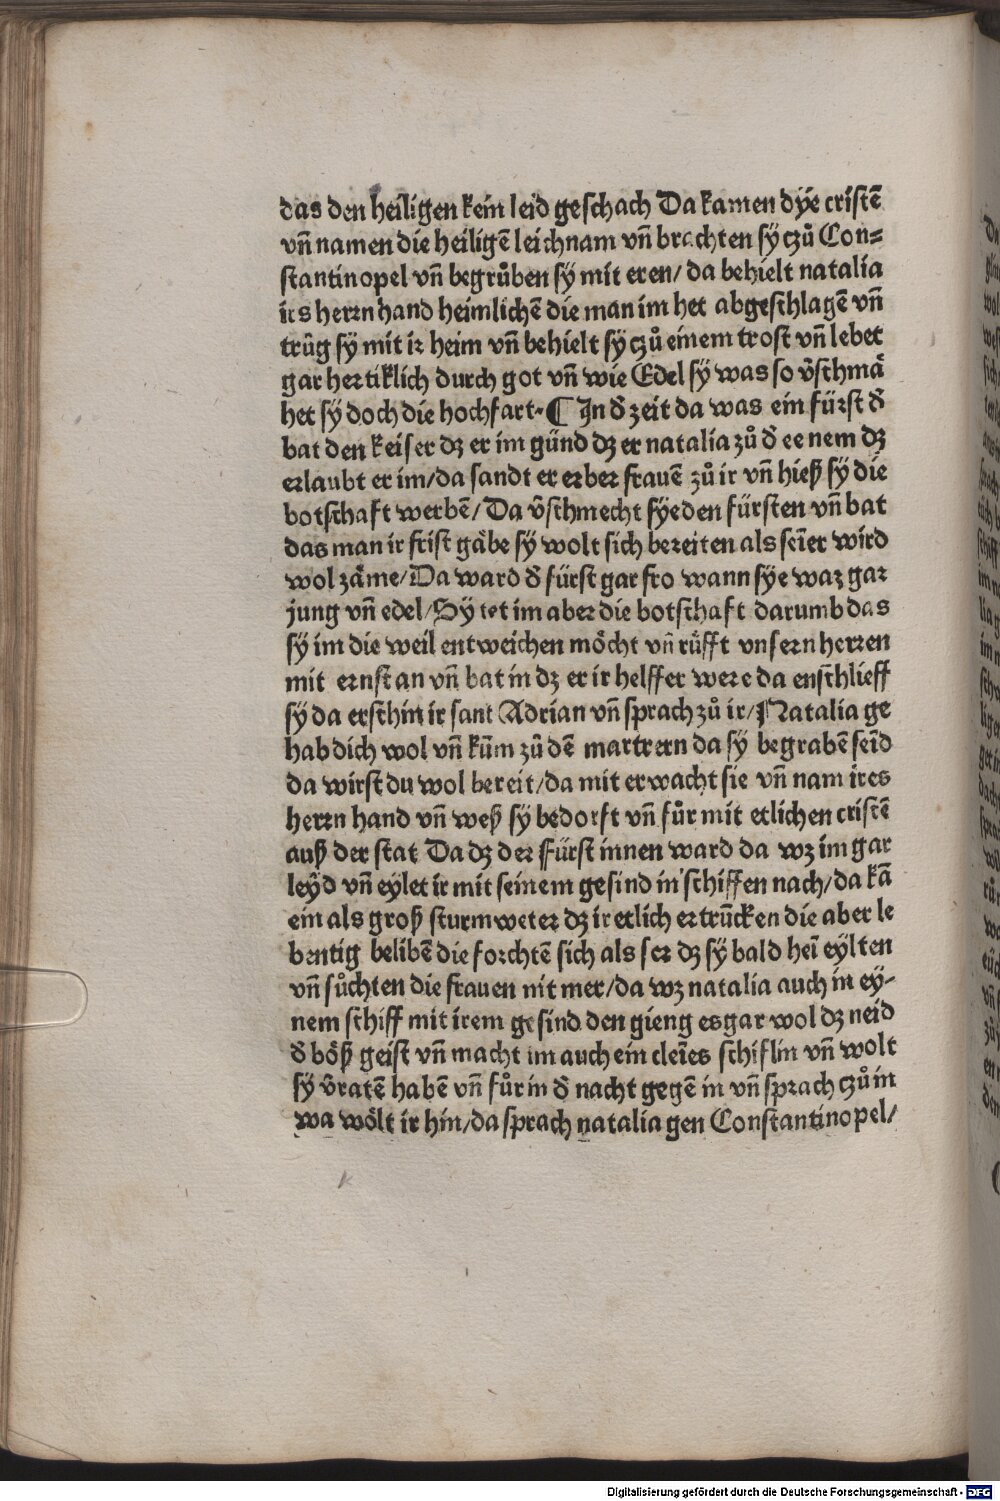 das den heiligen kein leid geschach Da kamen dÿe cristē
vn̄ namen die heiligē leichnam vn̄ brachten sÿ czů Con⸗
stantinopel vn̄ begrůben sÿ mit eren/ da behielt natalia
irs herrn hand heimlichē die man im het abgeschlagē vn̄
trůg sÿ mit ir heim vn̄ behielt sÿ czů einem trost vn̄ lebet
gar hertiklich durch got vn̄ wie Edel sÿ was so v̄schmä
het sÿ doch die hochfart. ¶ In d̄ zeit da was ein fürst d̄
bat den keiser dz er im günd dz er natalia zů d̄ ee nem dz
erlaubt er im/da sandt er erber frauē zů ir vn̄ hieß sÿ die
botschaft werbē/ Da v̄schmecht sÿe den fürsten vn̄ bat
das man ir frist gäbe sÿ wolt sich bereiten als sein̄er wird
wol zäme/Da ward d̄ fürst gar fro wann sÿe waz gar
jung vn̄ edel/Sÿ tet im aber die botschaft darumb das
sÿ im die weil entweichen möcht vn̄ rüfft vnsern herren
mit ernst an vn̄ bat in dz er ir helffer were da enschlieff
sÿ da erschin ir sant Adrian vn̄ sprach zů ir/Natalia ge
hab dich wol vn̄ kūm zů dē martrern da sÿ begrabē seīd
da wirst du wol bereit/da mit erwacht sie vn̄ nam ires
herrn hand vn̄ weß sÿ bedorft vn̄ fůr mit etlichen cristē
auß der stat Da dz der Fürst innen ward da wz im gar
leÿd vn̄ eylet ir mit seinem gesind in schiffen nach/da kā
ein als groß sturmweter dz ir etlich ertrūcken die aber le
bentig belibē die forchtē sich als ser dz sÿ bald heī eÿlten
vn̄ sůchten die frauen nit mer/da wz natalia auch in eÿ⸗
nem schiff mit irem gesind den gieng es gar wol dz neid
d̄ böß geist vn̄ macht im auch ein cleīes schiflin vn̄ wolt
sÿ v̄ratē habē vn̄ fůr in d̄ nacht gegē in vn̄ sprach czů in
wa wölt ir hin/da sprach natalia gen Constantinopel/
Digitalisierung gefördert durch die Deutsche Forschungsgemeinschaft - DFG